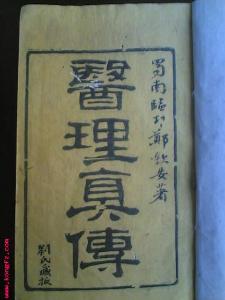 蜀南臨邛鄭欽安著
醫理真傳
劉氏藏板
www.kongfz.com